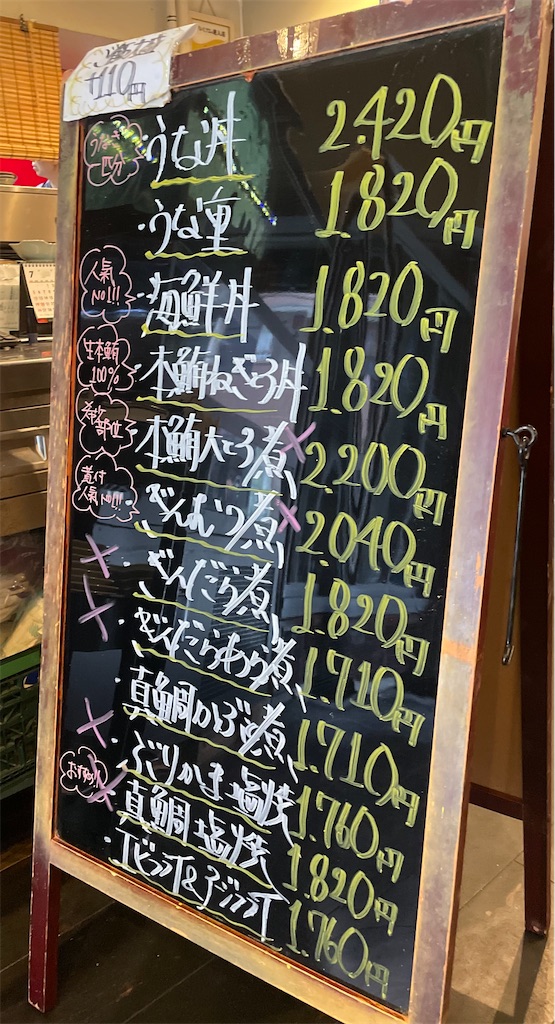 +110円
うなぎ
一匹分
・うな丼 2.420円
・うな重 1.820円
人氣
No!!!
・海鮮丼 1.820円
生本鮪
100%
・本鮪ねぎとろ丼 1.820円
希少
部位
・本鮪大とろ煮 2.200円
煮付
人氣No!!!
・ぎんむつ煮 2.040円
・ぎんだら煮 1.820円
・ぎんだらあら煮 1.710円
・真鯛かぶと煮 1.710円
・ぶりかま塩焼 1.760円
おすすめ!!
真鯛塩焼 1.820円
・エビフライ&アジフライ 1.760円
7